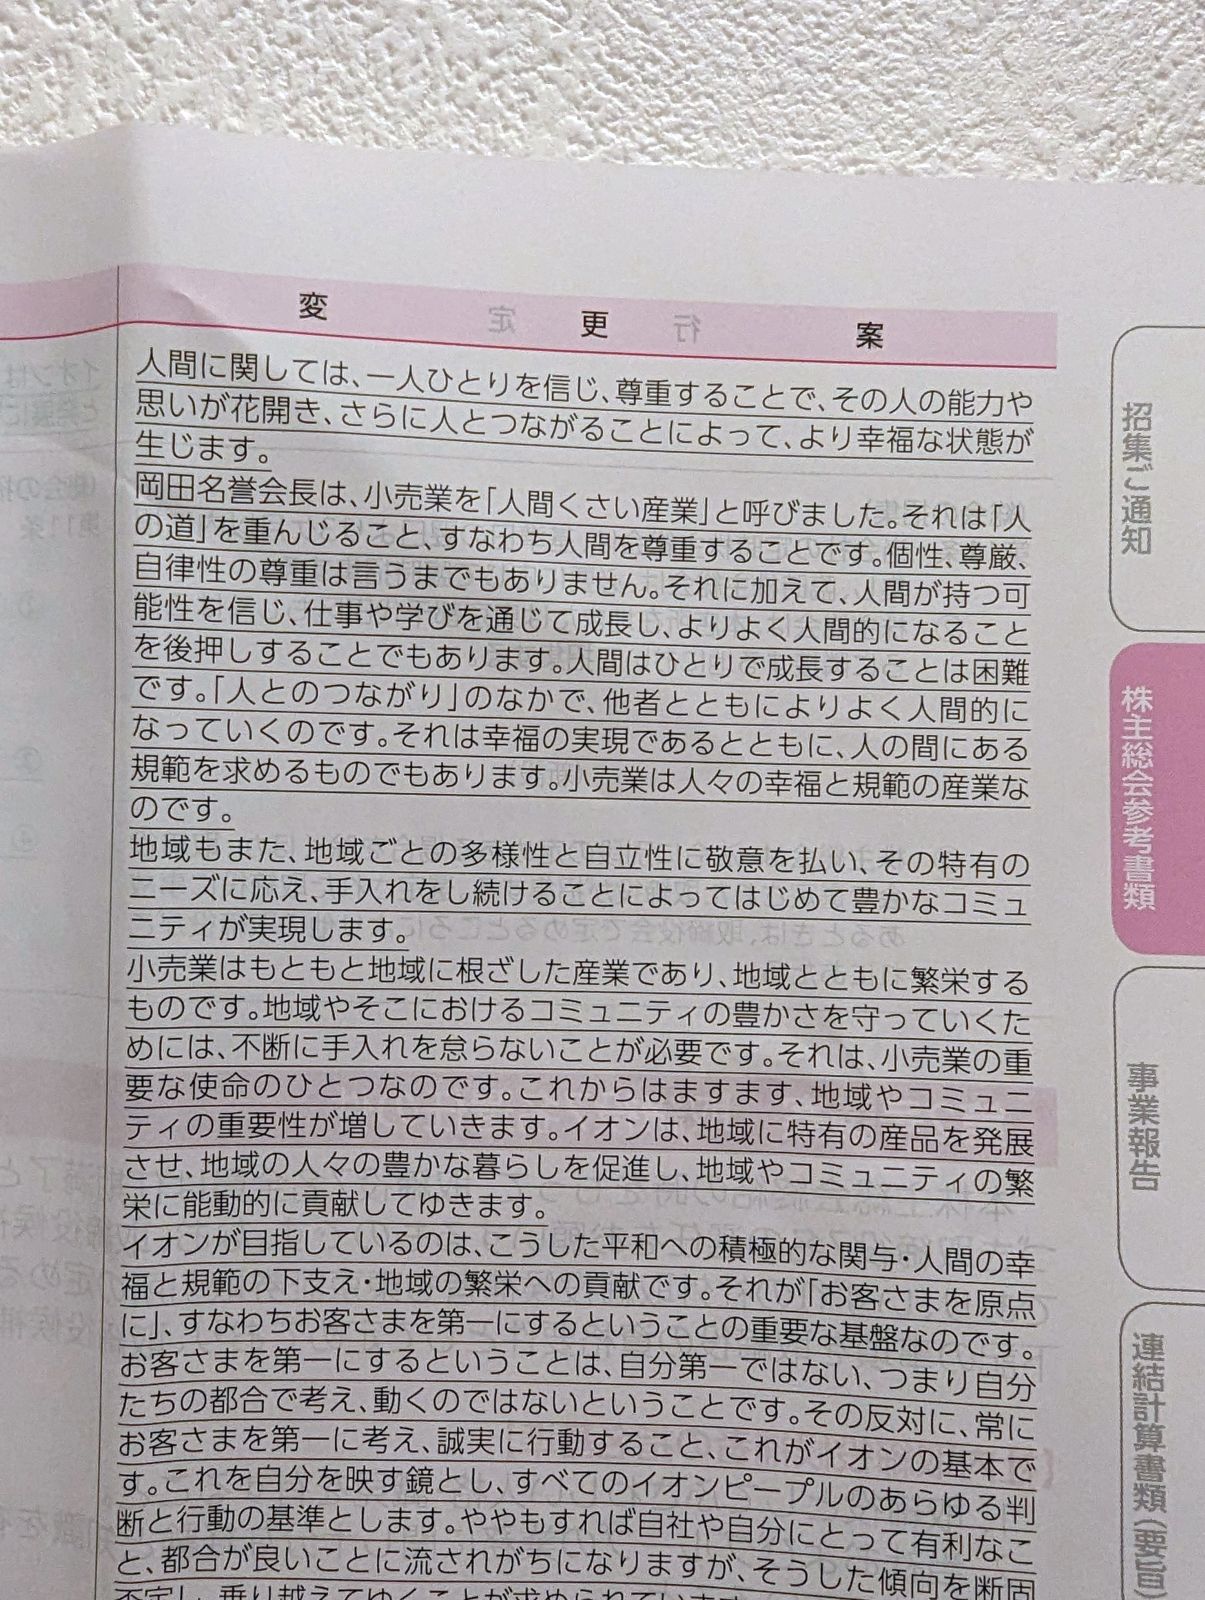 変更案
人間に関しては、一人ひとりを信じ、尊重することで、その人の能力や
思いが花開き、さらに人とつながることによって、より幸福な状態が
生じます。
岡田名誉会長は、小売業を「人間くさい産業」と呼びました。それは「人
の道」を重んじること、すなわち人間を尊重することです。個性、尊厳、
自律性の尊重は言うまでもありません。それに加えて、人間が持つ可
能性を信じ、仕事や学びを通じて成長し、よりよく人間的になること
を後押しすることでもあります。人間はひとりで成長することは困難
です。「人とのつながり」のなかで、他者とともによりよく人間的に
なっていくのです。それは幸福の実現であるとともに、人の間にある
規範を求めるものでもあります。小売業は人々の幸福と規範の産業な
のです。
地域もまた、地域ごとの多様性と自立性に敬意を払い、その特有の
ニーズに応え、手入れをし続けることによってはじめて豊かなコミュ
ニティが実現します。
小売業はもともと地域に根ざした産業であり、地域とともに繁栄する
ものです。地域やそこにおけるコミュニティの豊かさを守っていくた
めには、不断に手入れを怠らないことが必要です。それは、小売業の重
要な使命のひとつなのです。これからはますます、地域やコミュニ
ティの重要性が増していきます。イオンは、地域に特有の産品を発展
させ、地域の人々の豊かな暮らしを促進し、地域やコミュニティの繁
栄に能動的に貢献してゆきます。
イオンが目指しているのは、こうした平和への積極的な関与・人間の幸
福と規範の下支え・地域の繁栄への貢献です。それが「お客さまを原点
に」、すなわちお客さまを第一にするということの重要な基盤なのです。
お客さまを第一にするということは、自分第一ではない、つまり自分
たちの都合で考え、動くのではないということです。その反対に、常に
お客さまを第一に考え、誠実に行動すること、これがイオンの基本で
す。これを自分を映す鏡とし、すべてのイオンピープルのあらゆる判
断と行動の基準とします。ややもすれば自社や自分にとって有利なこ
と、都合が良いことに流されがちになりますが、そうした傾向を断固
否定し、乗り越えてゆくことが求められています。
招集ご通知
株主総会参考書類
事業報告
連結計算書類（要旨）